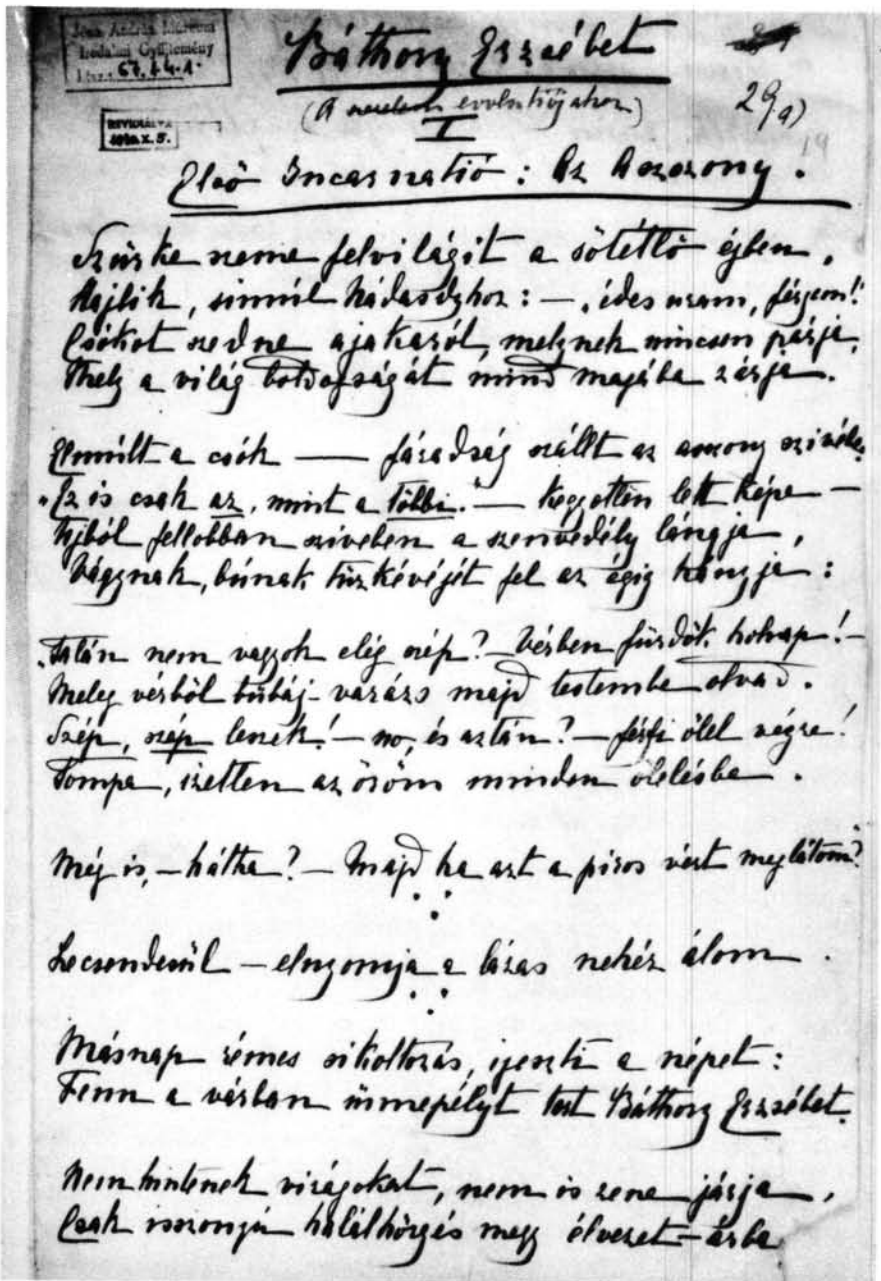 Jósa András Múzeum
Irodalmi Gyűjtemény
Ltsz.: 67.14.1.
Báthory Erzsébet
(A szerelem evolutiójához)
29a)
19
REVIDEÁLVA
X. 5.
I
Első Incarnatió: Az Asszony.
Szürke szeme felvilágit a sötétlő éjben,
Hajlik, simúl Nádasdyhoz: — „édes uram, férjem!"
Csókot szedne ajakaról, melynek nincsen párja,
Mely a világ boldogságát mind magába zárja.
Elmúlt a csók — fáradság szállt az asszony szivébe.
"Ez is csak az, mint a többi." — kegyetlen lett képe —
Ujból fellobban szivében a szenvedély lángja,
Vágynak, búnak tüzkévéjét fel az égig hányja:
„Talán nem vagyok elég szép? — Vérben fürdök holnap! —
Meleg vérből bűbáj-varázs majd testembe olvad.
Szép, szép leszek! — no, és aztán? — férfi ölel végre!
Tompa, izetlen az öröm minden ölelésbe.
Még is, — hátha? — Majd ha azt a piros vért meglátom?"
Lecsendesül — elnyomja a lázas nehéz álom.
Másnap rémes sikoltozás, ijeszti a népet:
Fenn a várban ünnepélyt tart Báthory Erzsébet.
Nem hintenek virágokat, nem is zene járja,
Csak iszonyú halálhörgés megy élvezet-árba